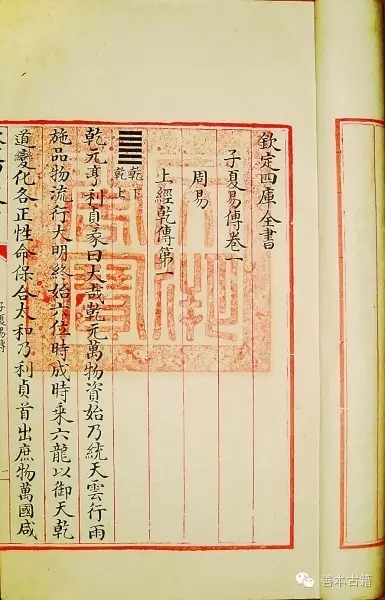 欽定四庫全書
子夏易傳卷一
周易
上經乾傳第一
乾下
乾上
乾元亨利貞彖曰大哉乾元萬物資始乃統天雲行雨
施品物流行大明終始六位時成時乘六龍以御天乾
道變化各正性命保合太和乃利貞首出庶物萬國咸
子夏易傳
一
善本古籍